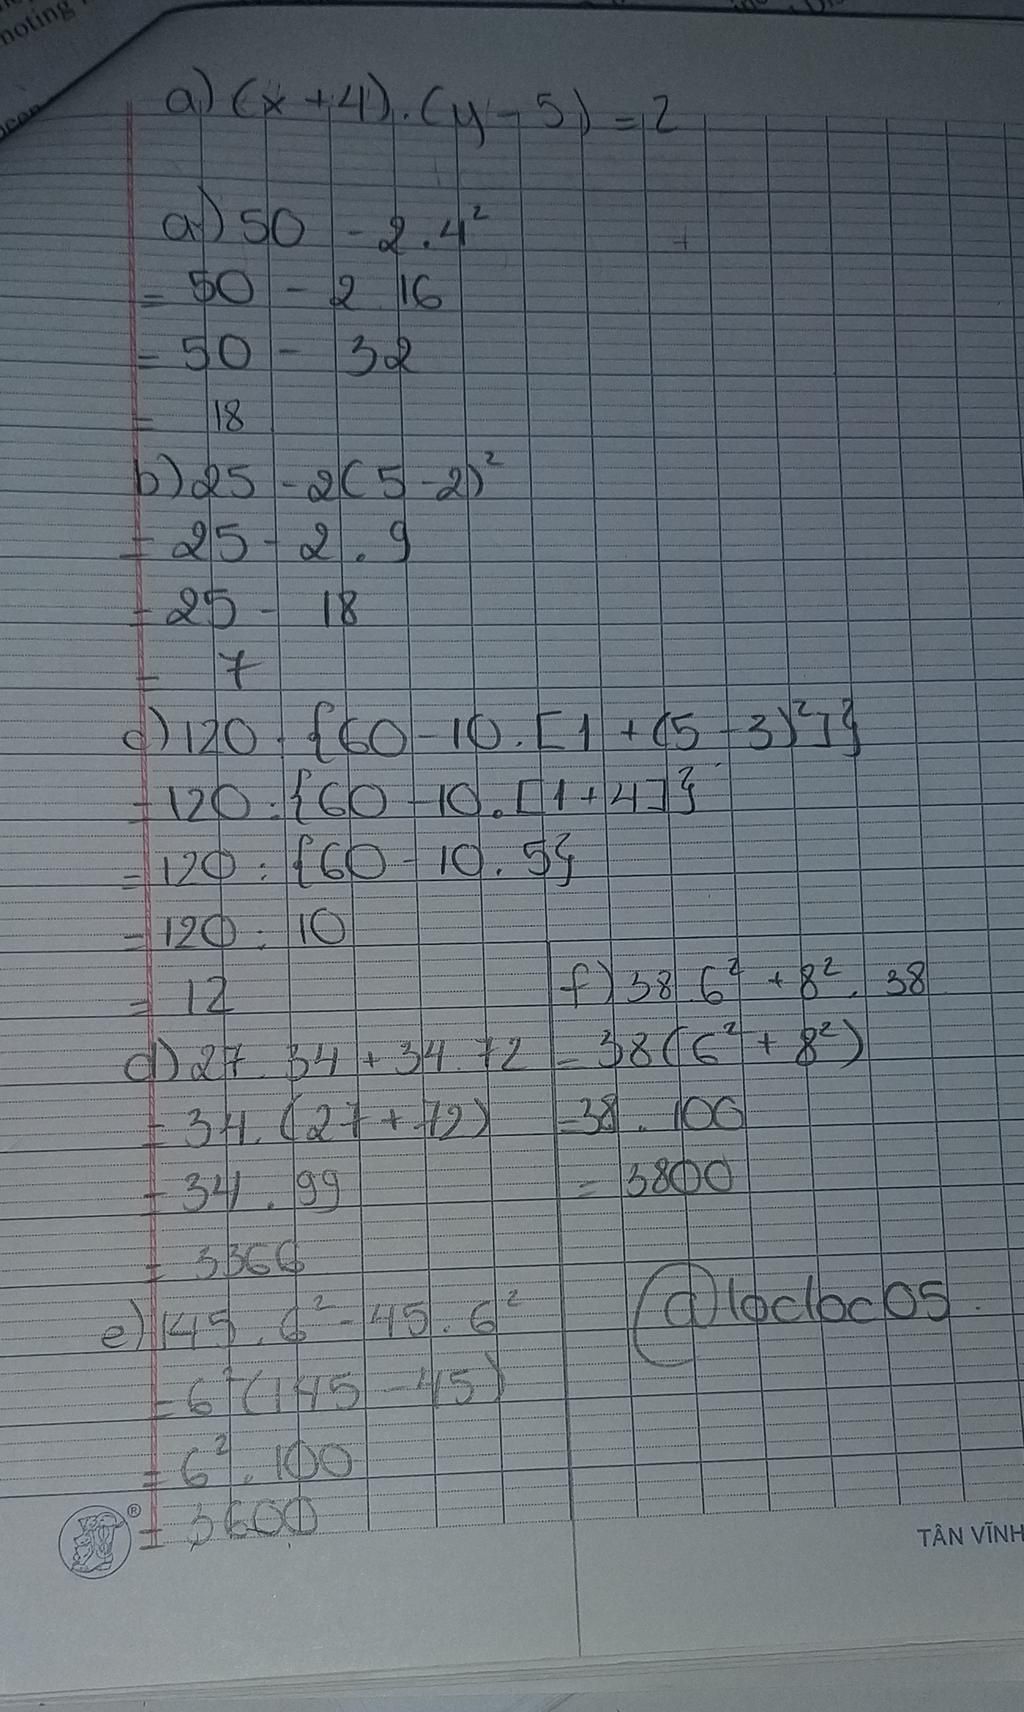 noting
a) (x + 4) . (y - 5) = 2
a) 50 - 2 . 4²
= 50 - 2 16
= 50 - 32
= 18
b) 25 - 2(5 - 2)²
= 25 - 2 . 9
= 25 - 18
= 7
c) 120 : {60 - 10 . [1 + (5 - 3)²]}
= 120 : {60 - 10 . [1 + 4]}
= 120 : {60 - 10 . 5}
= 120 : 10
= 12
d) 27 . 34 + 34 . 72
= 34 . (27 + 72)
= 34 . 99
= 3366
e) 145 . 6² - 45 . 6²
= 6² (145 - 45)
= 6² . 100
= 3600
f) 38 6² + 8² . 38
= 38 (6² + 8²)
= 38 . 100
= 3800
@locloc05
®
TÂN VĨNH